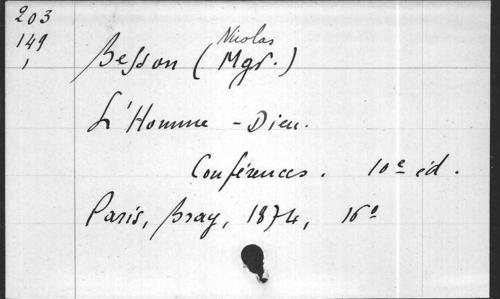 203
149
1
Nicolas
Besson (Mgr.)
L'Homme - Dieu.
Conférences. 10e éd.
Paris, Bray, 1874, 16°